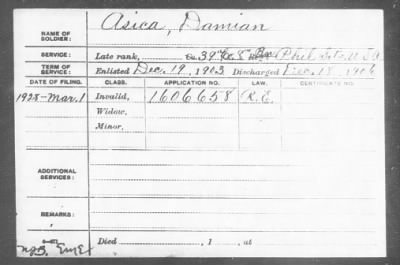 Asica, Damian
NAME OF SOLDIER:
SERVICE: Late rank, Co. 39" Phil
TERM OF SERVICE: Enlisted Dec. 19, 1903 Discharged Dec. 18, 1906
DATE OF FILING. CLASS. APPLICATION NO. LAW. CERTIFICATE NO.
1928-Mar. 1 Invalid, 1606658 R.E.
Widow,
Minor,
ADDITIONAL SERVICES:
REMARKS:
Died , 1 , at